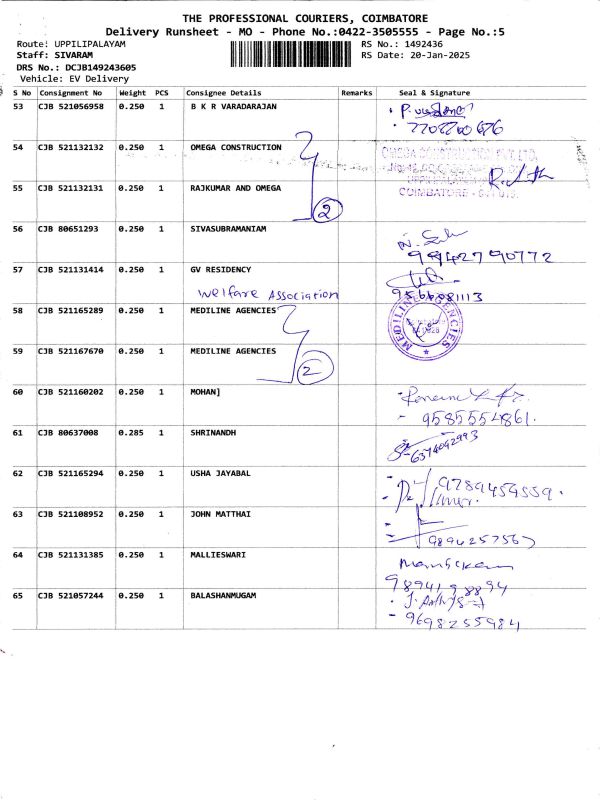 THE PROFESSIONAL COURIERS, COIMBATORE
Delivery Runsheet - MO - Phone No.:0422-3505555 - Page No.:5
Route: UPPILIPALAYAM RS No.: 1492436
Staff: SIVARAM RS Date: 20-Jan-2025
DRS No.: DCJB149243605
Vehicle: EV Delivery
S No Consignment No Weight PCS Consignee Details Remarks Seal & Signature
53 CJB 521056958 0.250 1 B K R VARADARAJAN
54 CJB 521132132 0.250 1 OMEGA CONSTRUCTION
55 CJB 521132131 0.250 1 RAJKUMAR AND OMEGA
2
COIMBATORE
56 CJB 80651293 0.250 1 SIVASUBRAMANIAM
9942790772
57 CJB 521131414 0.250 1 GV RESIDENCY
Welfare Association 9566081113
58 CJB 521165289 0.250 1 MEDILINE AGENCIES
MEDILINE AGENCIES
59 CJB 521167670 0.250 1 MEDILINE AGENCIES
2
60 CJB 521160202 0.250 1 MOHAN]
9585554861.
61 CJB 80637008 0.285 1 SHRINANDH
6374092993
62 CJB 521165294 0.250 1 USHA JAYABAL
9789459559.
63 CJB 521108952 0.250 1 JOHN MATTHAI
9894257567
64 CJB 521131385 0.250 1 MALLIESWARI
9894198894
65 CJB 521057244 0.250 1 BALASHANMUGAM
9698255984